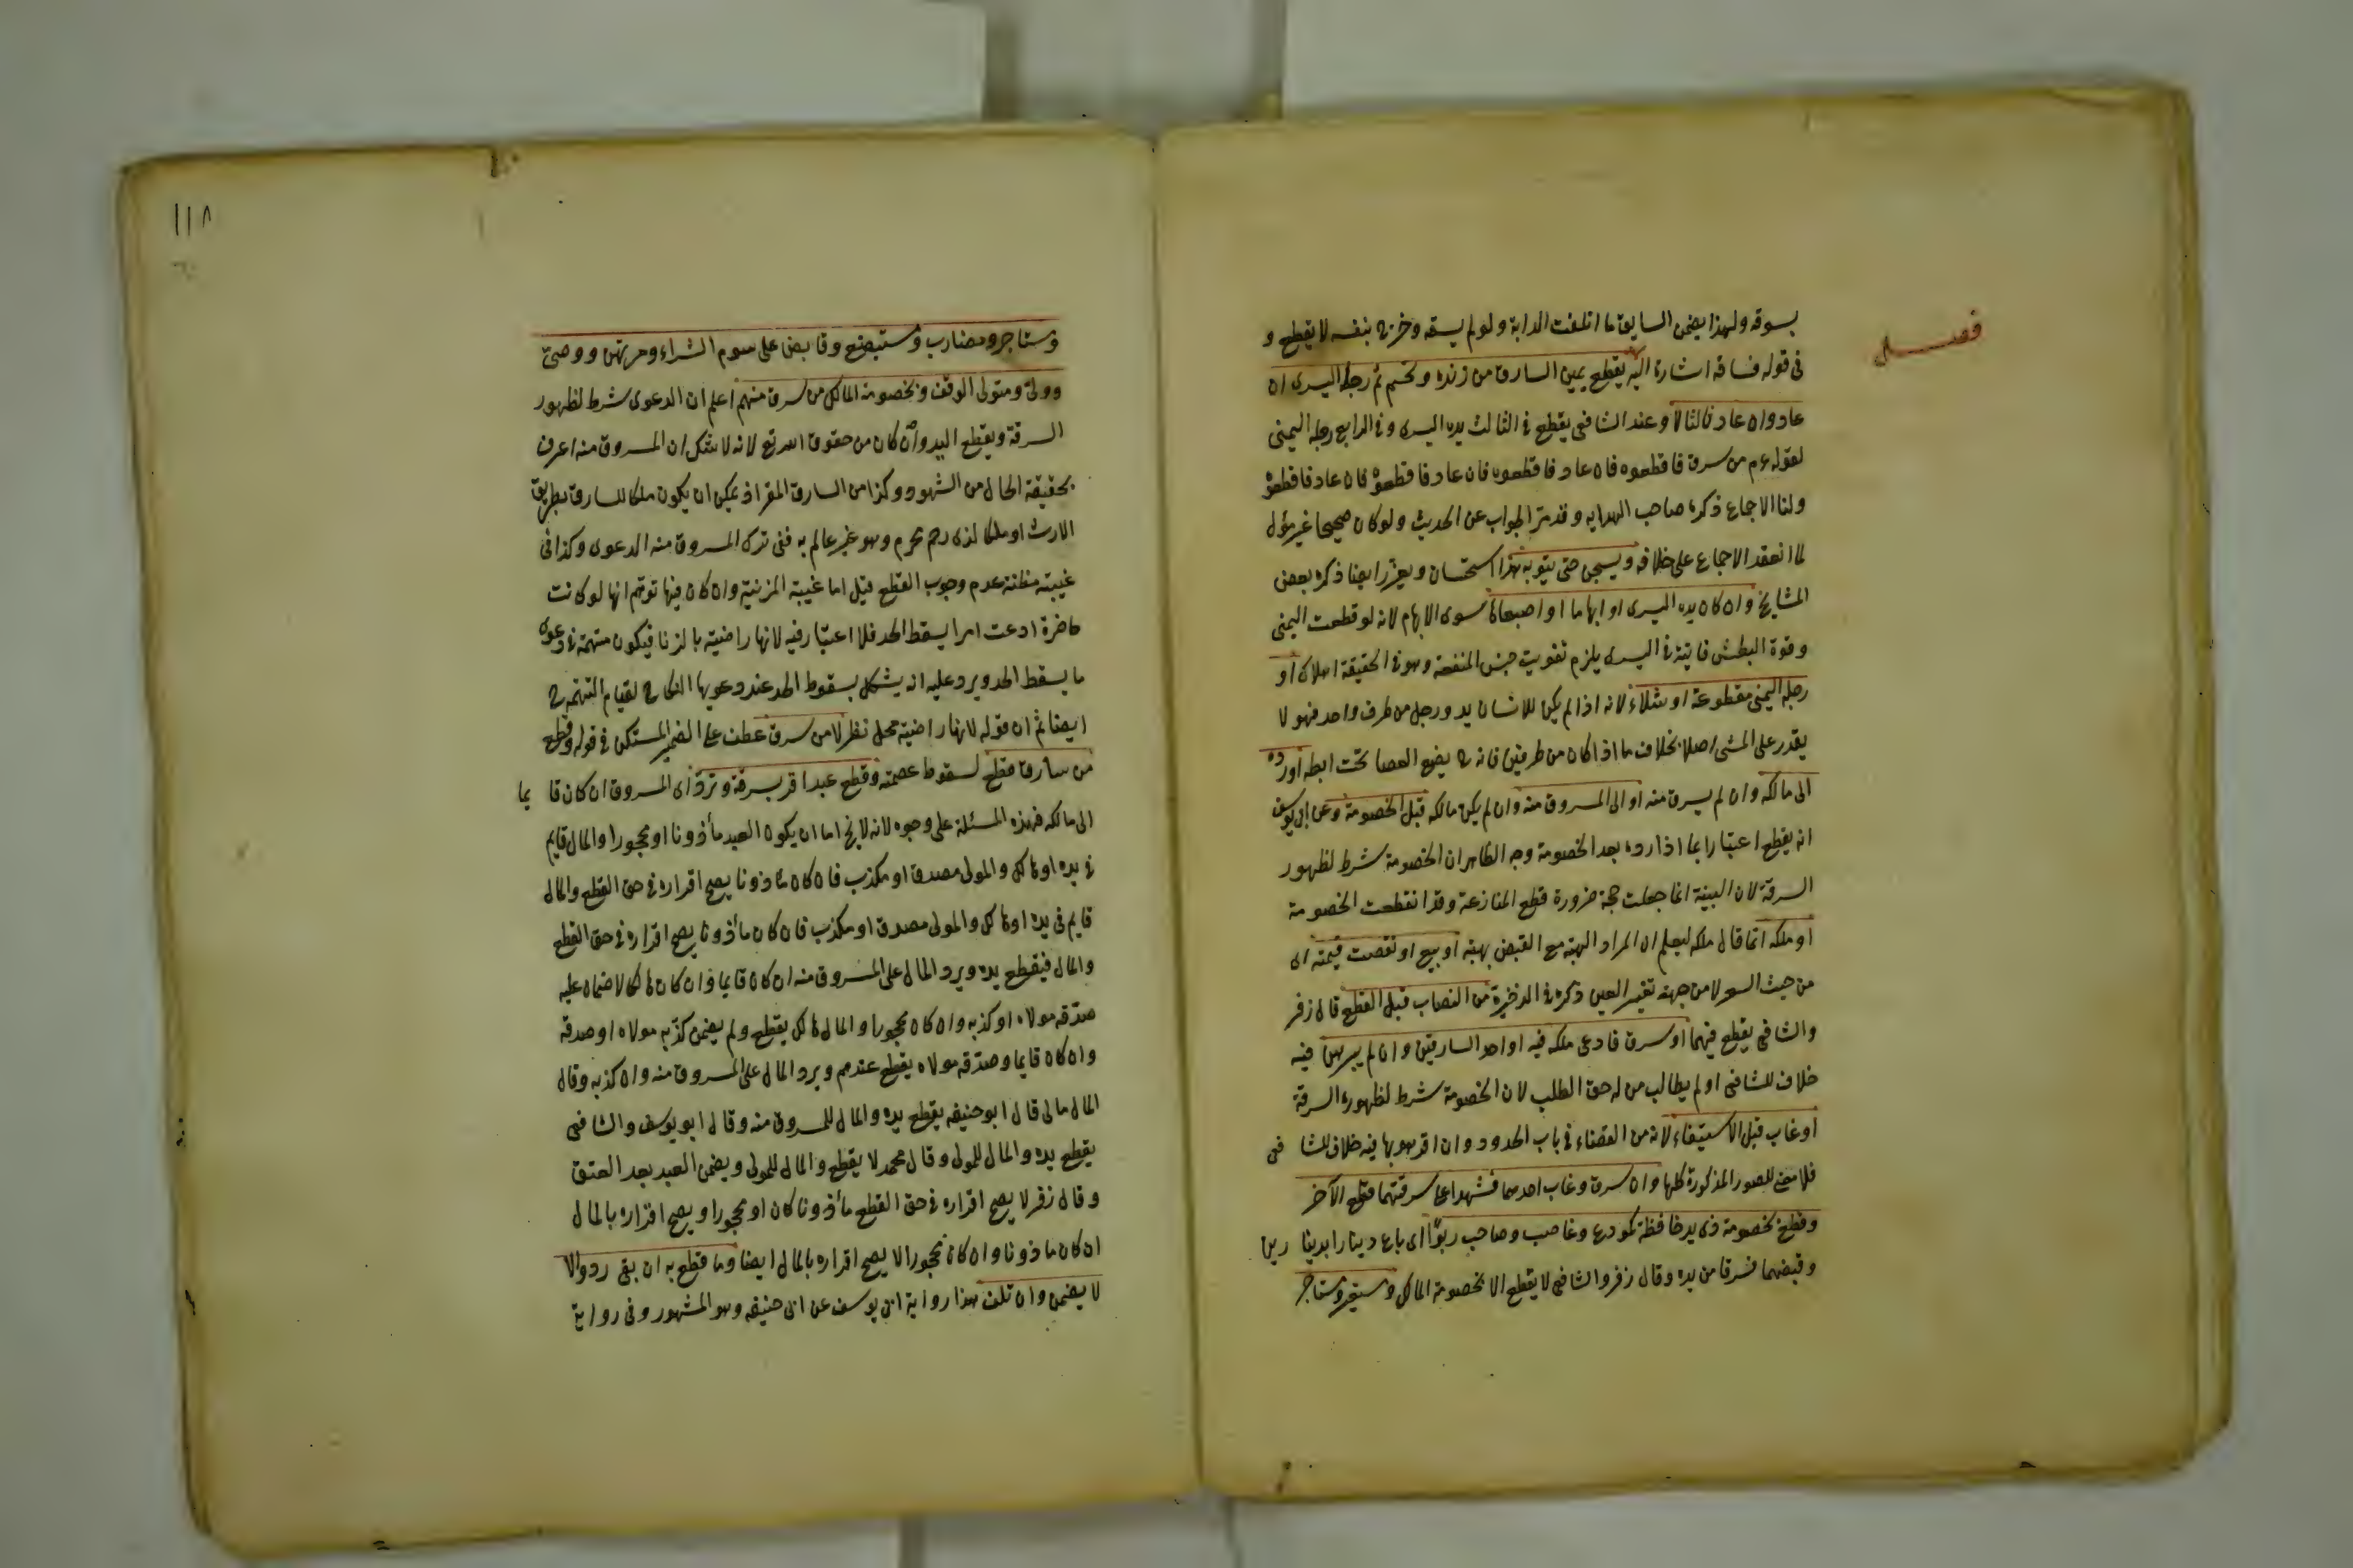 فصل
بسوقه ولهذا يضمن السايق ما اتلفت الدابة ولو لم يسقه وخرج بنفسه لا يقطع و
فى قوله فساقه اشارة اليه يقطع يمين السارق من زنده وتحسم ثم رجله اليسرى ان
عاد وان عاد ثالثا لا وعند الشافعى يقطع فى الثالث يده اليسرى وفى الرابع رجله اليمنى
لقوله عم من سرق فاقطعوه فان عاد فاقطعوه فان عاد فاقطعوه فان عاد فاقطعوه
ولنا الاجماع ذكره صاحب الهدايه وقد مر الجواب عن الحديث ولو كان صحيحا غير مؤل
لما انعقد الاجماع على خلافه ويسجن حتى يتوب هذا استحسان ويعزر ايضا ذكره بعض
المشايخ وان كان يده اليسرى او ابهامها او اصبعاها سوى الابهام لانه لو قطعت اليمنى
وقوة البطش فايتة فى اليسرى يلزم تفويت جنس المنفعة وهو فى الحقيقة اهلاك او
رجله اليمنى مقطوعة او شلاء لانه اذا لم يكن للانسان يد ورجل من طرف واحد فهو لا
يقدر على المشى اصلا بخلاف ما اذا كان من طرفين فانه ح يضع العصا تحت ابطه او رده
الى مالكه وان لم يسرق منه او الى المسروق منه وان لم يكن مالكه قبل الخصومة وعن ابى يوسف
انه يقطع اعتبارا بما اذا رده بعد الخصومة وجه الظاهر ان الخصومة شرط لظهور
السرقة لان البينة انما جعلت حجة ضرورة قطع المنازعة وقد انقطعت الخصومة
او ملكه انما قال ملكه ليعلم ان المراد الهبة مع القبض بهبة او بيع او نقصت قيمته اى
من حيث السعر لا من جهة تغير العين ذكره فى الذخيرة من النصاب قبل القطع قال زفر
والشافعى يقطع فيهما او سرق فادعى ملكه فيه او احد السارقين وان لم يبرهن فيه
خلاف للشافعى او لم يطالب من له حق الطلب لان الخصومة شرط لظهور السرقة
او غاب قبل الاستيفاء لانه من القضاء فى باب الحدود وان اقر هو بها فيه خلاف للشافعى
فلا مع للصور المذكورة كلها وان سرق وغاب احدهما فشهد على سرقتهما قطع الآخر
وقطع بخصومة ذى يد حافظة كمودع وغاصب وصاحب ربوا اى باع دينارا بدينارين
وقبضهما فسرقا من يده وقال زفر والشافعى لا يقطع الا بخصومة المالك ومستعير ومستاجر
١١٨
ومستاجر ومضارب ومستبضع وقابض على سوم الشراء ومرتهن ووصى
وولى ومتولى الوقف وبخصومة المالك من سرق منهم اعلم ان الدعوى شرط لظهور
السرقة ويقطع اليد وان كان من حقوق الله تع لانه لا شك ان المسروق منه اعرف
بحقيقة الحال من الشهود وكذا من السارق المقر اذ يمكن ان يكون ملكا للسارق بطريق
الارث او ملكا لذى رحم محرم وهو غير عالم به ففى ترك المسروق منه الدعوى وكذا فى
غيبته مظنة عدم وجوب القطع قيل اما غيبة المزنية وان كان فيها توهم انها لو كانت
حاضرة ادعت امرا يسقط الحد فلا اعتبار فيه لانها راضية بالزنا فيكون متهمة فى دعوى
ما يسقط الحد ويرد عليه انه يشكل بسقوط الحد عند دعويها النكاح لقيام التهمة ح
ايضا ثم ان قوله لانها راضية محل نظر لا من سرق عطف على الضمير المستكن فى قوله وقطع
من سارق قطع لسقوط عصمته وقطع عبد اقر بسرقة وترد اى المسروق ان كان قايما
الى مالكه فهذه المسئلة على وجوه لانه لا يخ اما ان يكون العبد مأذونا او محجورا والمال قايم
فى يده او هالك والمولى مصدق او مكذب فان كان مأذونا يصح اقراره فى حق القطع والمال
قايم فى يده او هالك والمولى مصدق او مكذب فان كان مأذونا يصح اقراره فى حق القطع
والمال فيقطع يده ويرد المال على المسروق منه ان كان قايما وان كان هالكا لا ضمان عليه
صدقه مولاه او كذبه وان كان محجورا والمال هالك يقطع ولم يضمن كذبه مولاه او صدقه
وان كان قايما وصدقه مولاه يقطع عندهم ويرد المال على المسروق منه وان كذبه وقال
المال مالى قال ابو حنيفه يقطع يده والمال للمسروق منه وقال ابو يوسف والشافعى
يقطع يده والمال للمولى وقال محمد لا يقطع والمال للمولى ويضمن العبد بعد العتق
وقال زفر لا يصح اقراره فى حق القطع مأذونا كان او محجورا ويصح اقراره بالمال
ان كان مأذونا وان كان محجورا لا يصح اقراره بالمال ايضا وما قطع به ان بقى رد والا
لا يضمن وان تلف هذا رواية ابى يوسف عن ابى حنيفه وهو المشهور وفى رواية